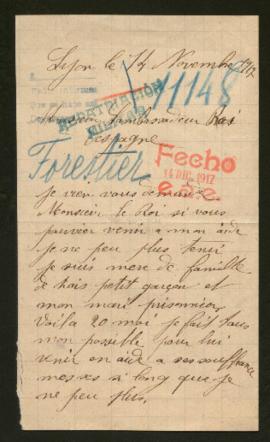 Lyon le 14 Novembre 1917
11148
REPATRIACION
MILITAR
l'ambassadeur Roi
espagne
Forestier
Fecho
14 DIC. 1917
je vien vous deman
Monsieur le Roi si vous
pouvier venir a mon aide
je ne peu plus tenir
je suis mere de famille
de trois petit garçon et
mon mari prisonnier
voila 20 moi je fait tous
mon possible pour lui
venir en aide a ses souffrance
mes si long que je
ne peu plus.